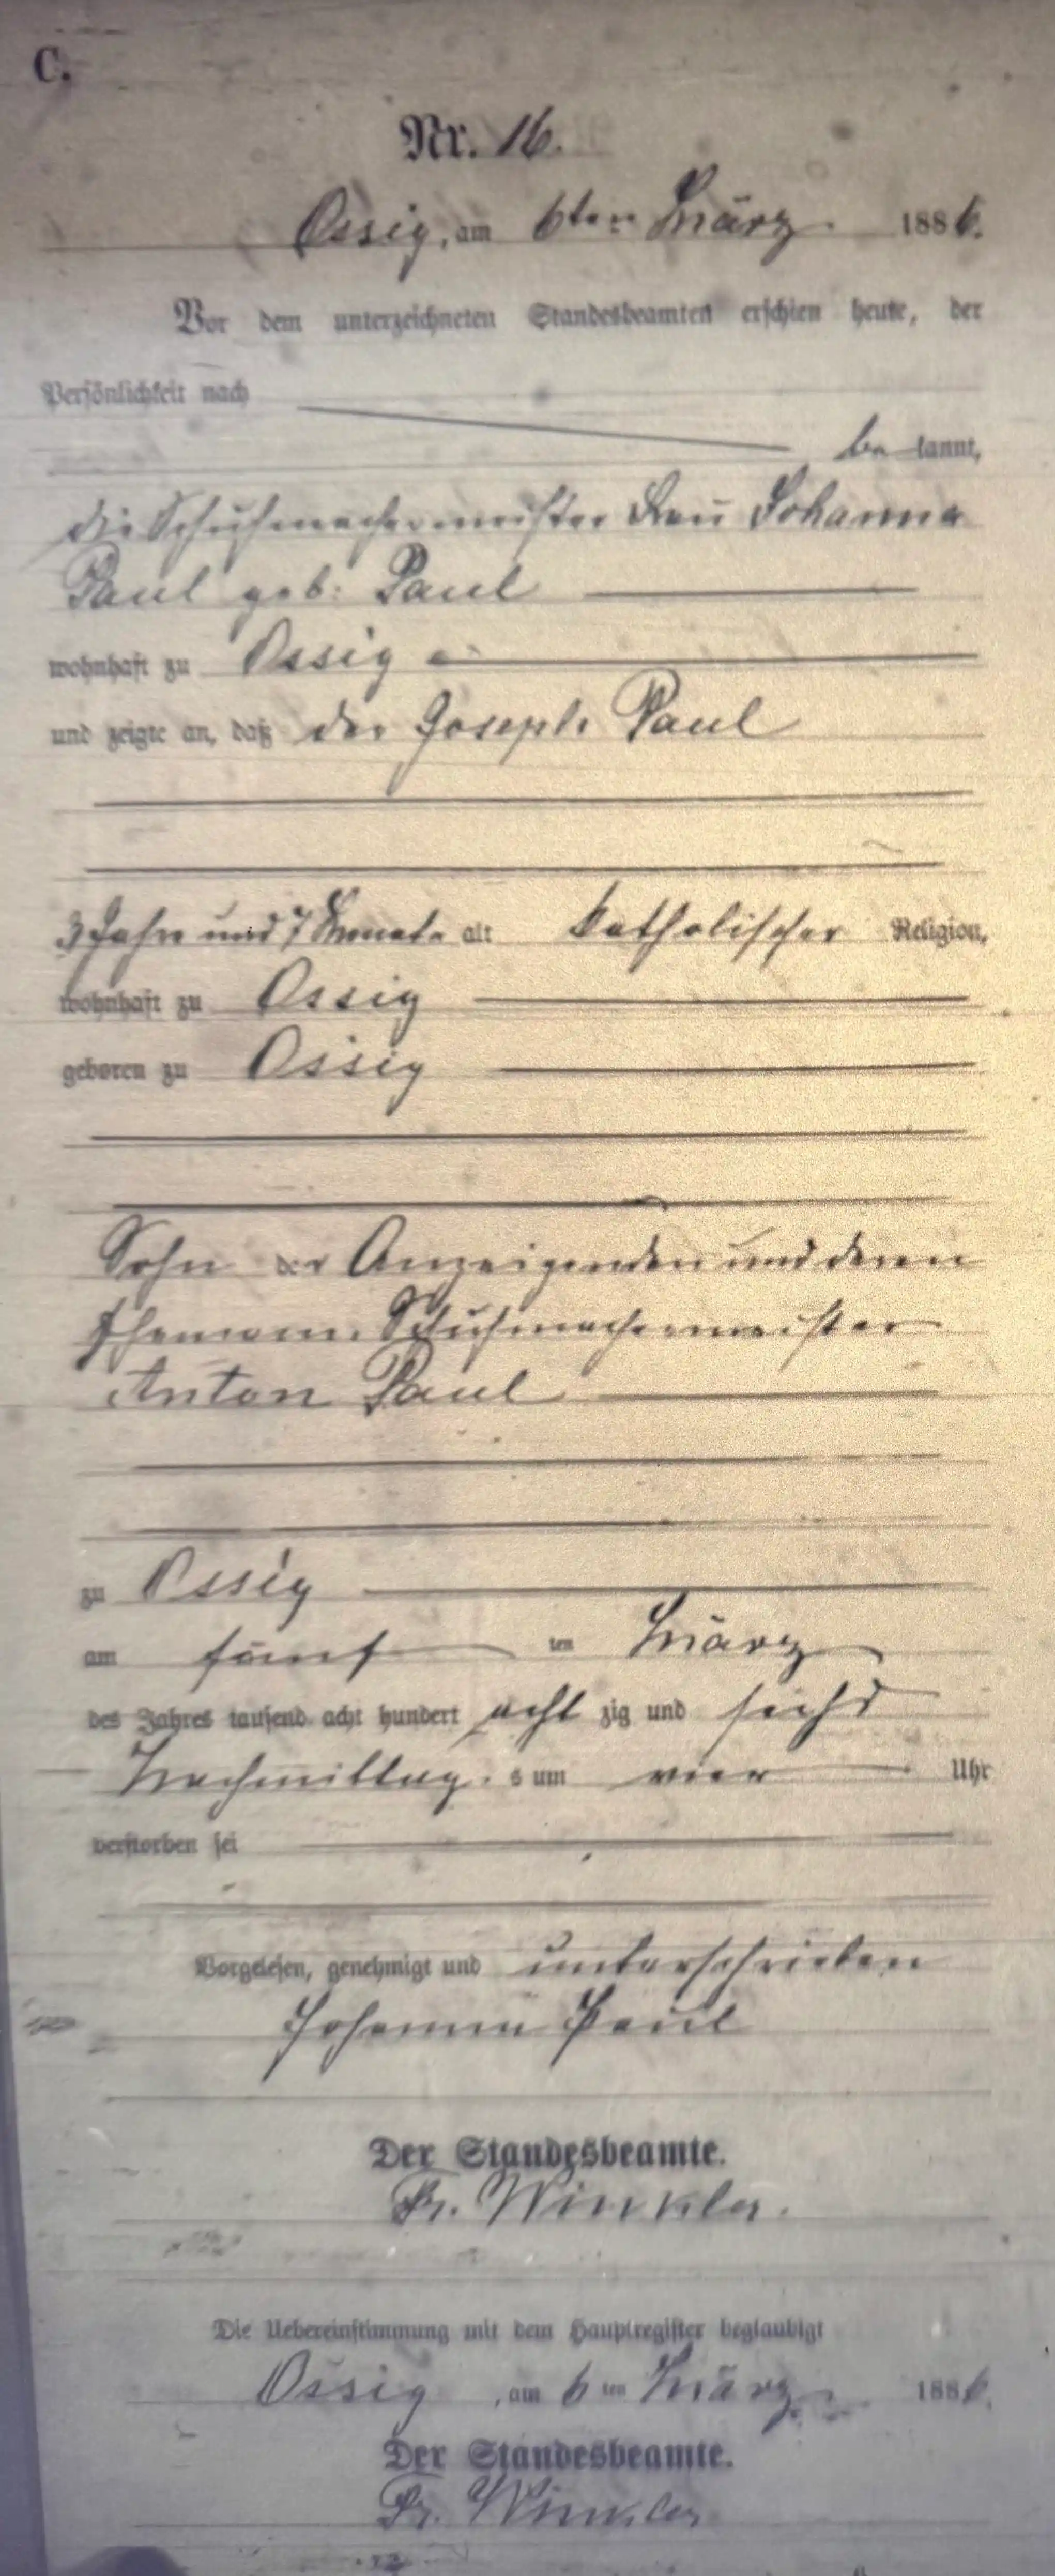 C.
Nr. 16.
Ossig, am 6ten März 1886.
Vor dem unterzeichneten Standesbeamten erschien heute, der
Persönlichkeit nach
be kannt,
die Schuhmachermeister Frau Johanna
Paul geb. Paul
wohnhaft zu Ossig
und zeigte an, daß der Joseph Paul
3 Jahre und 7 Monate alt katholischer Religion,
wohnhaft zu Ossig
geboren zu Ossig
Sohn der Anzeigenden und deren
Ehemann Schuhmachermeister
Anton Paul
zu Ossig
am fünf ten März
des Jahres tausend acht hundert acht zig und sechs
Nachmittag s um vier Uhr
verstorben sei
Vorgelesen, genehmigt und unterschrieben
Johanna Paul
Der Standesbeamte.
Fr. Winkler.
Die Uebereinstimmung mit dem Hauptregister beglaubigt
Ossig, am 6 ten März 1886.
Der Standesbeamte.
Fr. Winkler